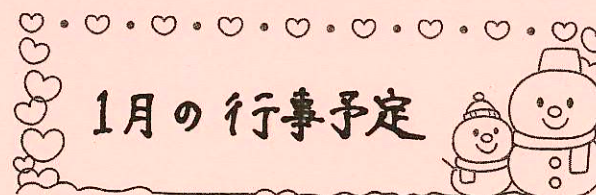 1月の行事予定